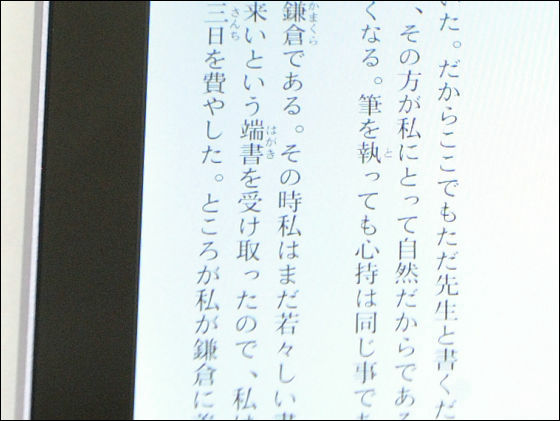 いた。だからここでもただ先生と書くだ
、その方が私にとって自然だからである
くなる。筆を執っても心持は同じ事であ
鎌倉である。その時私はまだ若々しい書
来いという端書を受け取ったので、私は
三日を費やした。ところが私が鎌倉に着